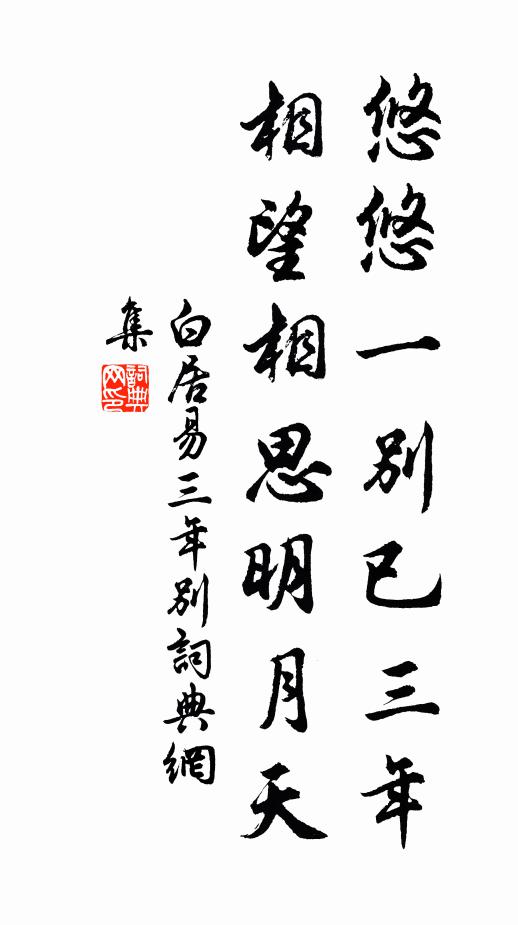 悠悠一別已三年
相望相思明月天
白居易三年別詞典網
集
詞典网印